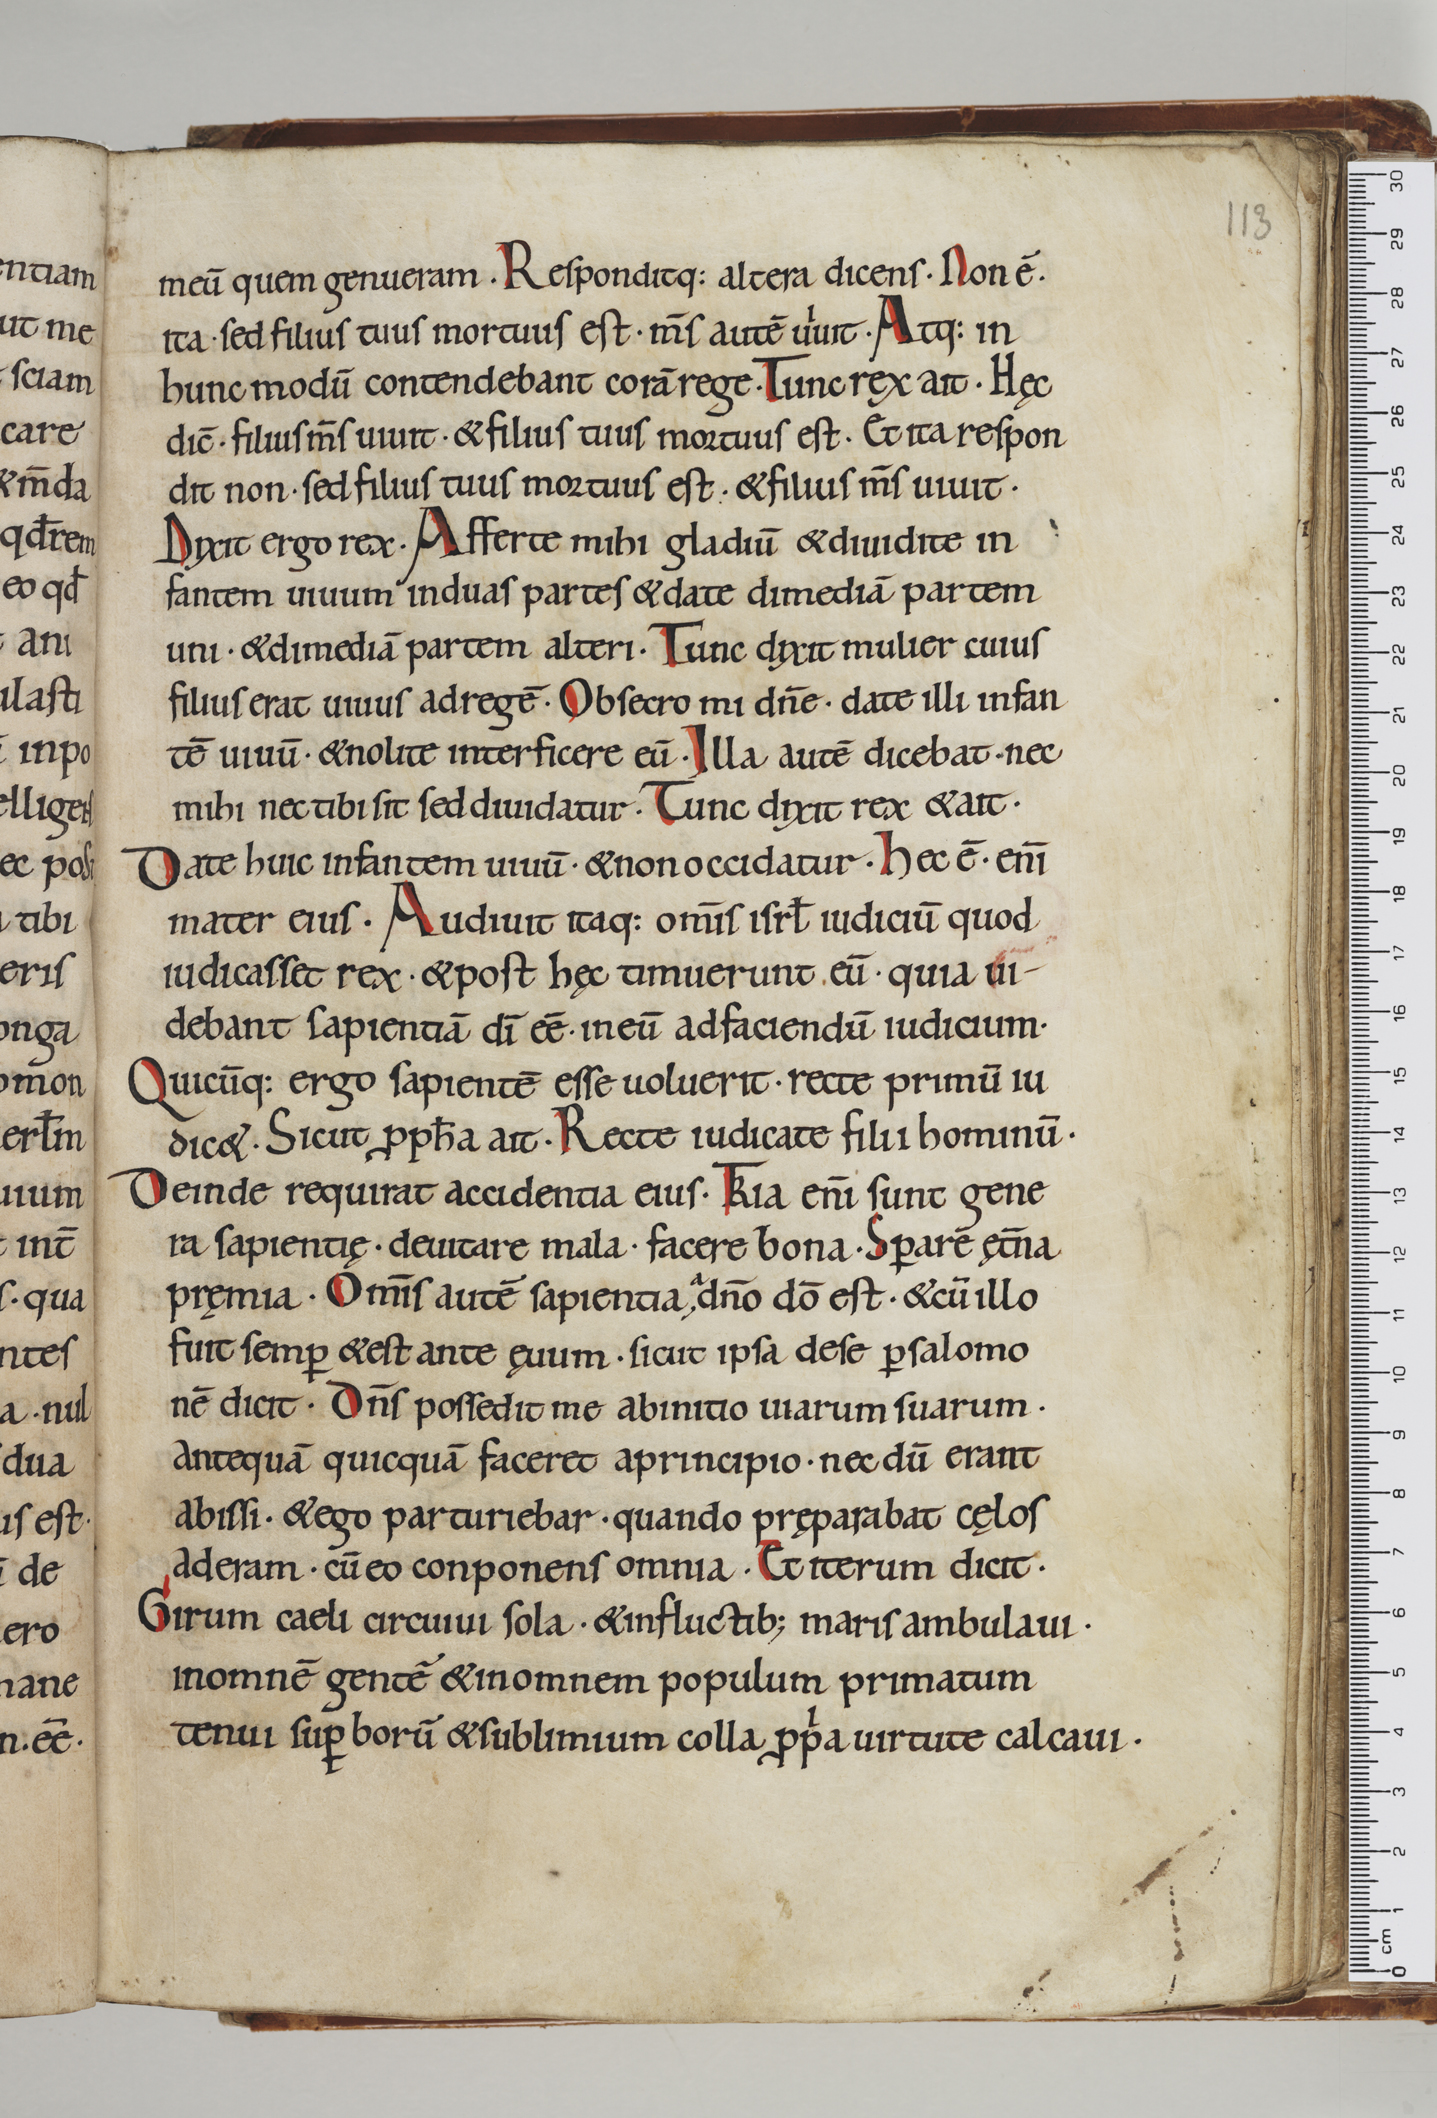 113
meū quem genueram . Responditq: altera dicens . Non ē .
ita . sed filius tuus mortuus est . m̄s autē uiuit . Atq: in
hunc modū contendebant corā rege . Tunc rex ait . Hęc
dic̄ . filius m̄s uiuit . & filius tuus mortuus est . Et ita respon
dit non . sed filius tuus mortuus est . & filius m̄s uiuit .
Dixit ergo rex . Afferte mihi gladiū & diuidite in
fantem uiuum in duas partes & date dimediā partem
uni . & dimediā partem alteri . Tunc dixit mulier cuius
filius erat uiuus ad regē . Obsecro mi dn̄e . date illi infan
tē uiuū . & nolite interficere eū . Illa autē dicebat . nec
mihi nec tibi sit sed diuidatur . Tunc dixit rex & ait .
Date huic infantem uiuū . & non occidatur . Hec ē . eni̅
mater eius . Audiuit itaq: om̄is isrł iudiciū quod
iudicasset rex . & post hęc timuerunt eū . quia ui-
debant sapientiā dī eē . in eū ad faciendū iudicium .
Quicūq: ergo sapientē esse uoluerit . recte primū iu
dic& . Sicut ꝓph̄a ait . Recte iudicate filii hominū .
Deinde requirat accidentia eius . Tria eni̅ sunt gene
ra sapientię . deuitare mala . facere bona . Sperarē ęt̄na
pręmia . Om̄is autē sapientia a dn̄o dō est . & cū illo
fuit semꝑ & est ante ęuum . sicut ipsa de se ꝑ salomo
nē dicit . Dn̄s possedit me ab initio uiarum suarum .
antequā quicquā faceret a principio . nec dū erant
abissi . & ego parturiebar . quando pręparabat cęlos
aderam . cū eo conponens omnia . Et iterum dicit .
Girum caeli circuiui sola . & in fluctib; maris ambulaui .
in omnē gentē & in omnem populum primatum
tenui suꝑborū & sublimium colla ꝓpia uirtute calcaui .